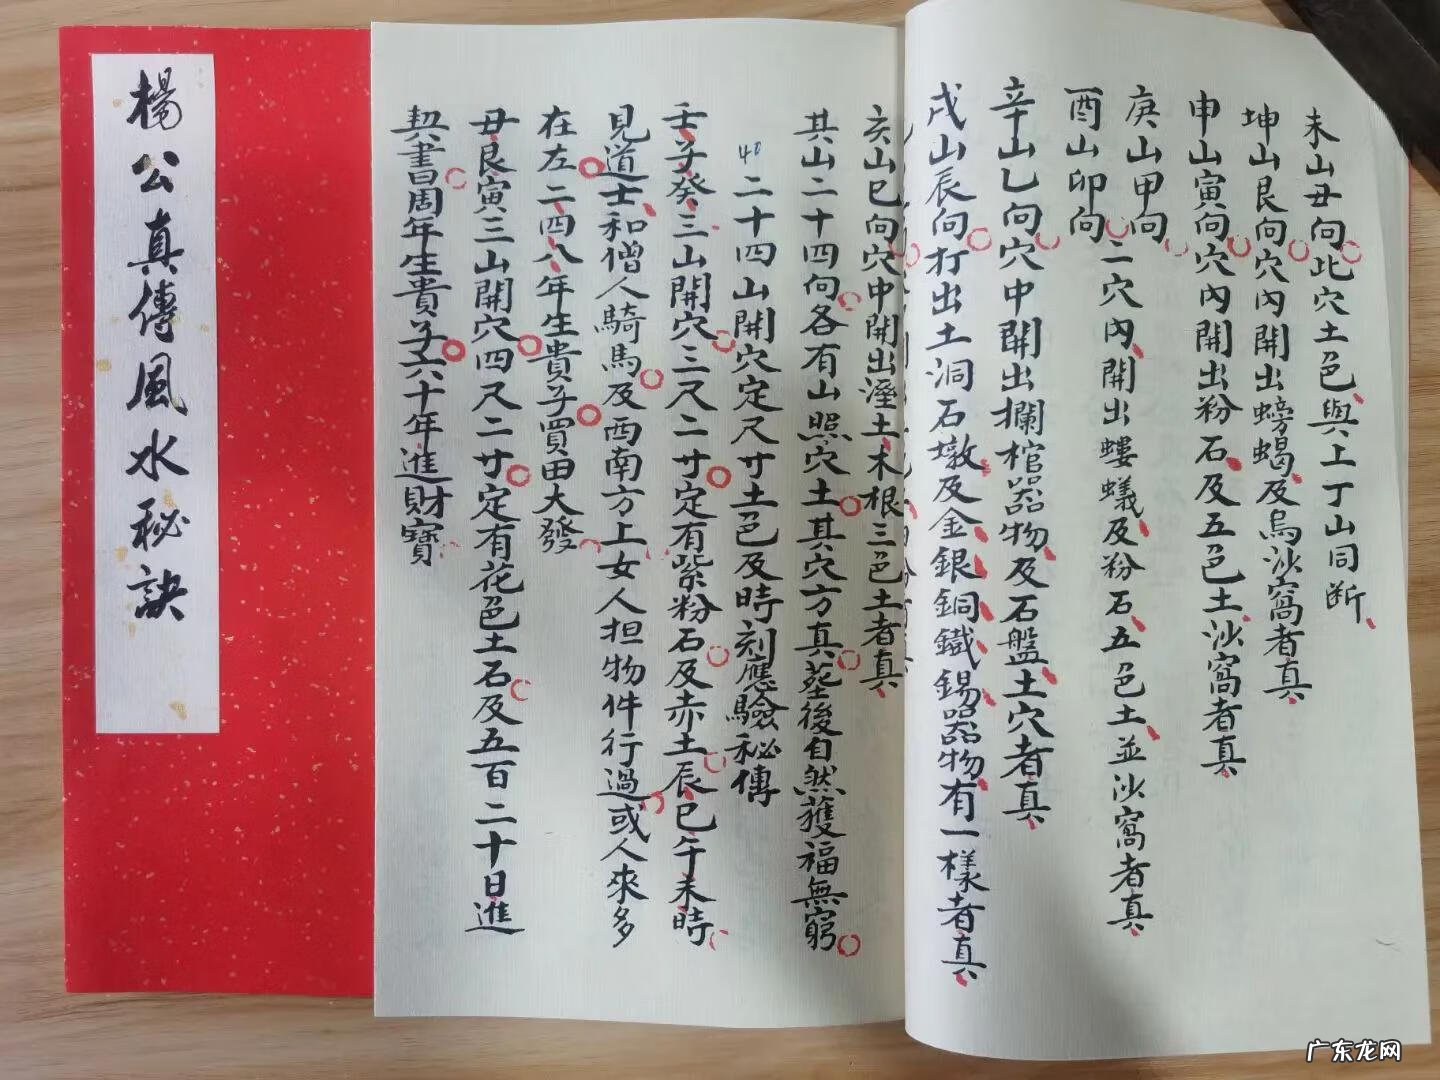 楊公真傳風水秘訣
未山丑向此穴土色與上丁山同断
坤山艮向穴內開出螃蝎及烏沙窩者真
申山寅向穴內開出粉石及五色土沙窩者真
庚山甲向
酉山卯向
一穴內開出螻蟻及粉石五色土並沙窩者真
辛山乙向穴中開出攔棺器物及石盤土穴者真
戌山辰向打出土洞石墩及金銀銅鐵錫器物有一樣者真
亥山巳向穴中開出溼土木根三色土者真
其山二十四向各有山照穴土其穴方真葬後自然獲福無窮
40
二十四山開穴定尺寸土色及時刻應驗秘傳
壬子癸三山開穴三尺二寸定有紫粉石及赤土辰巳午未時
見道士和僧人騎馬及西南方上女人担物件行過或人來多
在左二四八年生貴子買田大發
丑艮寅三山開穴四尺二寸定有花色土石及五百二十日進
契書周年生貴子六十年進財寶
广东龙网